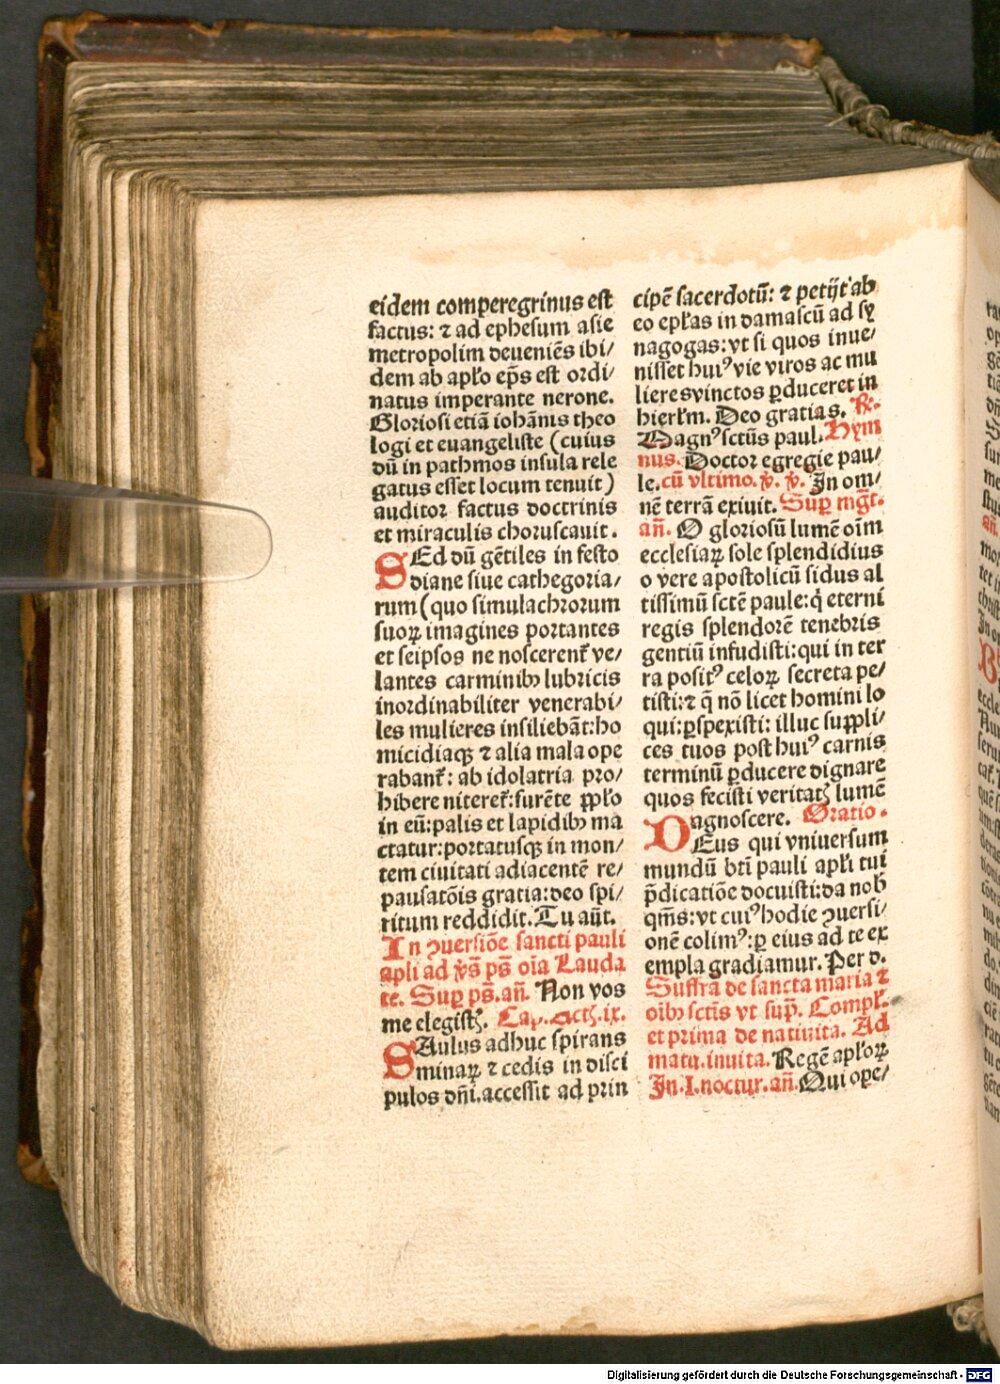 eidem comperegrinus est
factus: ⁊ ad ephesum asie
metropolim deueniēs ibi/
dem ab apl'o ep̄s est ordi/
natus imperante nerone.
Gloriosi etiā iohānis theo
logi et euangeliste (cuius
dū in pathmos insula rele
gatus esset locum tenuit)
auditor factus doctrinis
et miraculis choruscauit.
SEd dū gētiles in festo
diane siue cathegoria/
rum (quo simulachrorum
suoꝝ imagines portantes
et seipsos ne noscerent᷑ ve/
lantes carminibꝫ lubricis
inordinabiliter venerabi/
les mulieres insiliebāt: ho
micidiaqꝫ ⁊ alia mala ope
rabant᷑: ab idolatria pro/
hibere niteret᷑: furēte ꝓpl'o
in eū: palis et lapidibꝫ ma
ctatur: portatusqꝫ in mon/
tem ciuitati adiacentē re/
pausatōis gratia: deo spi/
ritum reddidit. Tu aūt.
In ꝯuersiōe sancti pauli
apli ad v̄s ps̄ oīa Lauda
te. Suꝑ ps̄. an̄. Non vos
me elegistꝭ. Cap. Actꝭ. ix.
SAulus adhuc spirans
minaꝝ ⁊ cedis in disci
pulos dn̄i. accessit ad prin
cipē sacerdotū: ⁊ petijt ab
eo epl'as in damascū ad sy
nagogas: vt si quos inue/
nisset huiꝰ vie viros ac mu
lieres vinctos ꝑduceret in
hierl'm. Deo gratias. ℟.
Magnꝰ sctūs paul. Hym
nus. Doctor egregie pau/
le. cū vltimo. v̄. v̄. In om/
nē terrā exiuit. Suꝑ mḡt.
an̄. O gloriosū lumē oīm
ecclesiaꝝ sole splendidius
o vere apostolicū sidus al
tissimū sctē paule: q̇ eterni
regis splendorē tenebris
gentiū infudisti: qui in ter
ra positꝰ celoꝝ secreta pe/
tisti: ⁊ q̄ nō licet homini lo
qui: ꝑspexisti: illuc suppli/
ces tuos post huiꝰ carnis
terminū ꝑducere dignare
quos fecisti veritatꝭ lumē
agnoscere. Oratio.
DEus qui vniuersum
mundū bt̄i pauli apl'i tui
p̄dicatiōe docuisti: da nob̄
qm̄s: vt cuiꝰ hodie ꝯuersi/
onē colimꝰ: ꝑ eius ad te ex
empla gradiamur. Per d.
Suffra de sancta maria ⁊
oībꝫ sctīs vt sup̄. Compl'.
et prima de natiuita. Ad
matu. inuita. Regē apl'oꝝ
In. I. noctur. an̄. Qui ope/